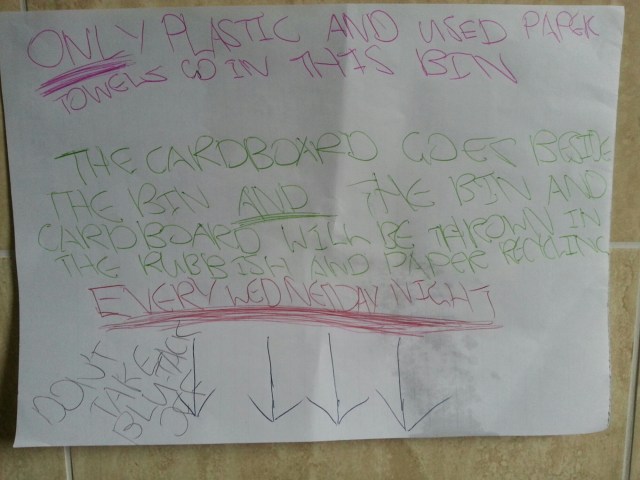 ONLY PLASTIC AND USED PAPER
TOWELS GO IN THIS BIN
THE CARDBOARD GOES BESIDE
THE BIN AND THE BIN AND
CARDBOARD WILL BE THROWN IN
THE RUBBISH AND PAPER RECYCLING
EVERY WEDNESDAY NIGHT
DON'T
TAKE
BLU-TACK